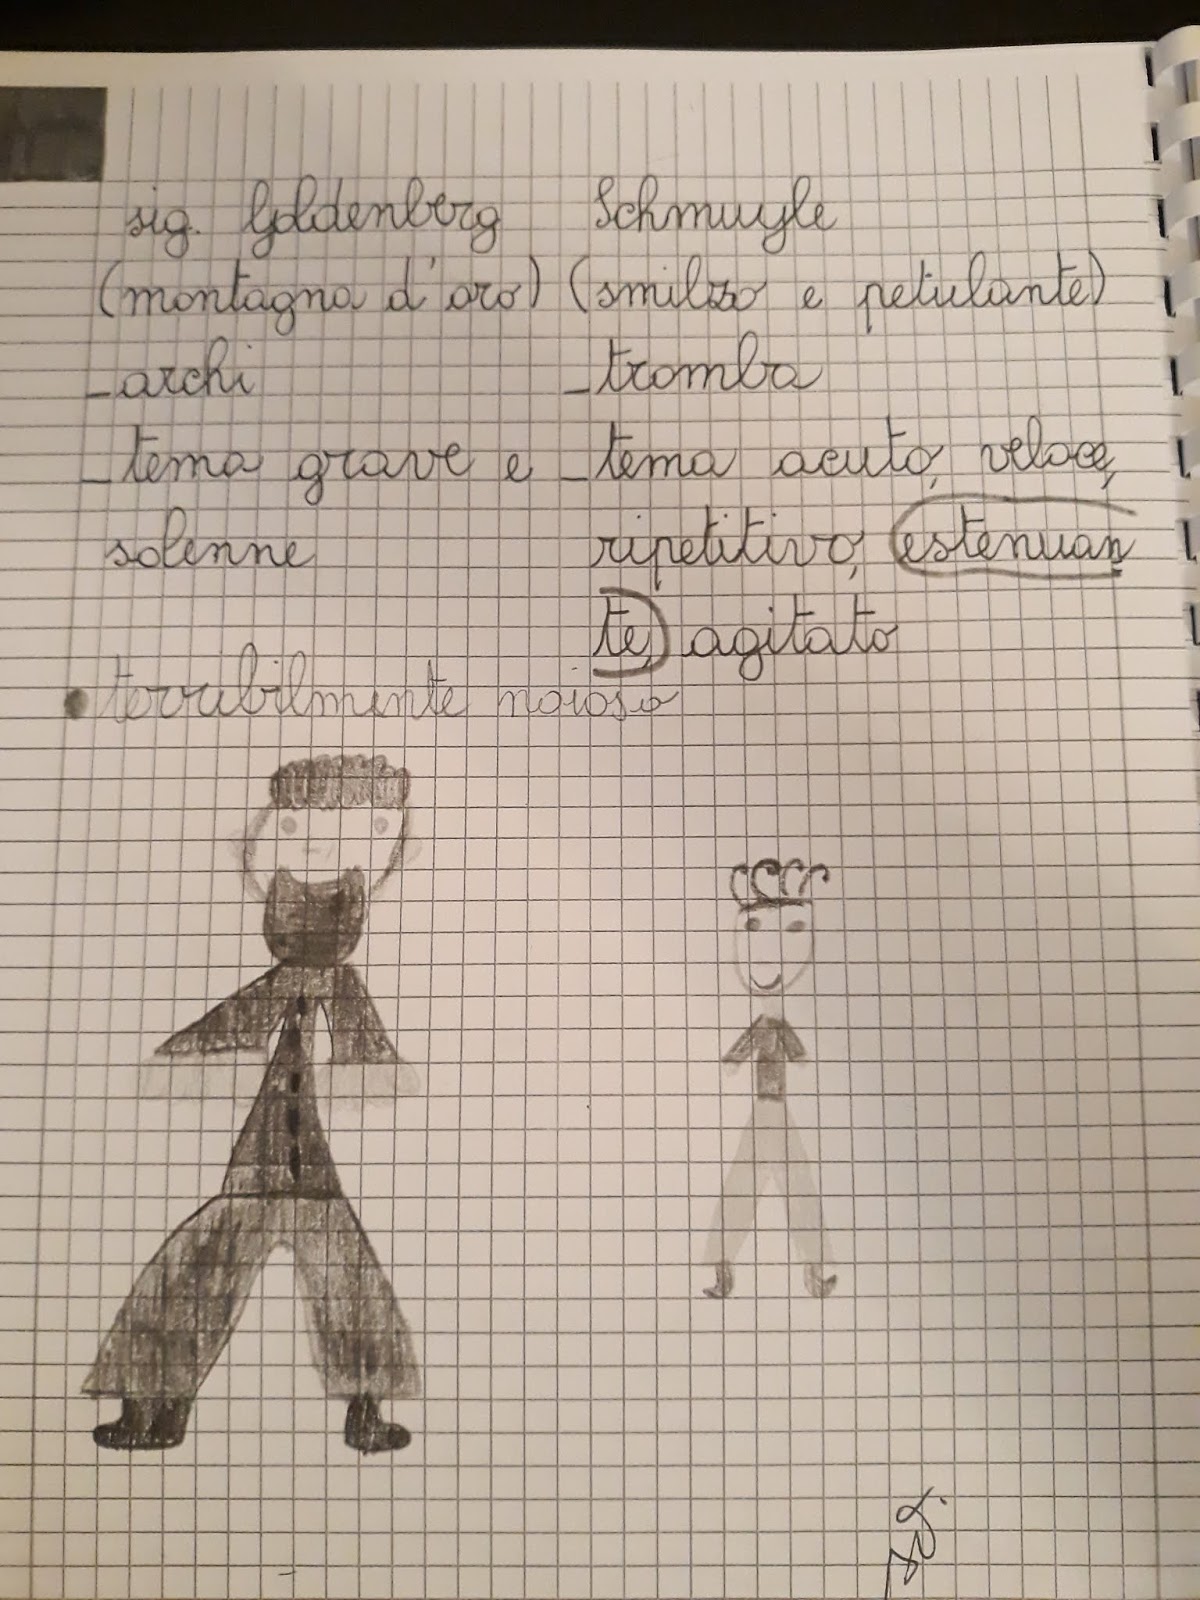 sig. Goldenberg Schmuyle
(montagna d'oro) (smilzo e petulante)
_archi _tromba
_tema grave e _tema acuto, veloce,
solenne ripetitivo, estenuan
te, agitato
• terribilmente noioso